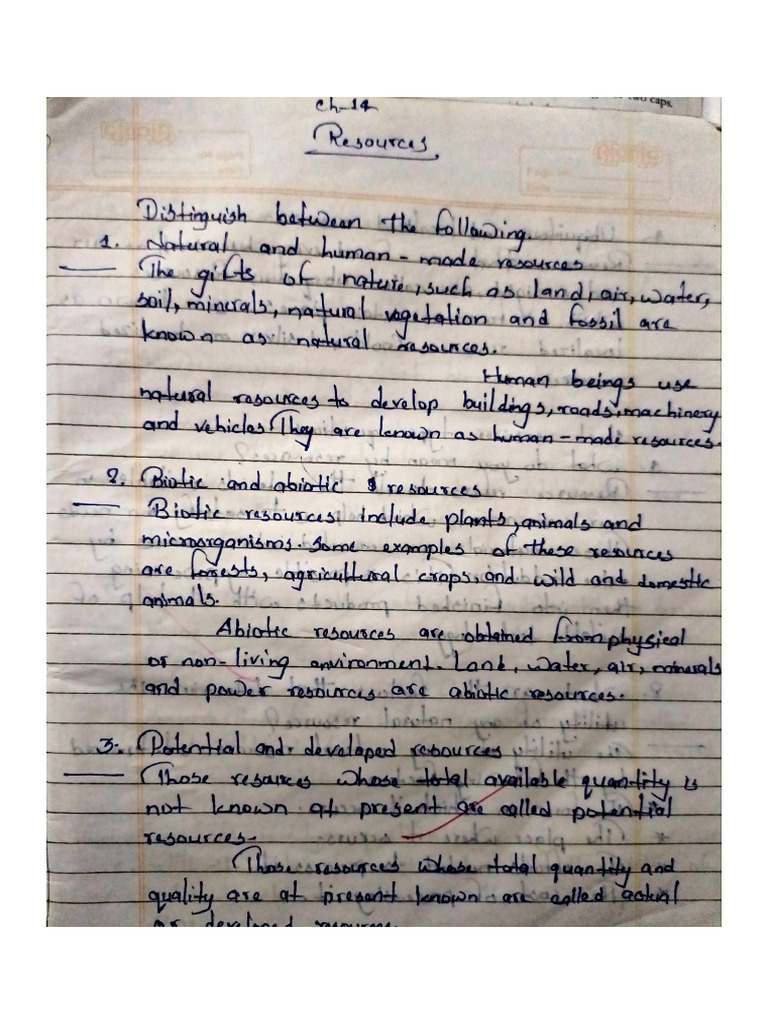 two caps.
Ch-14
Resources
Distinguish between the following.
1. Natural and human-made resources
The gifts of nature, such as land, air, water,
soil, minerals, natural vegetation and fossil are
known as natural resources.
Human beings use
natural resources to develop buildings, roads, machinery
and vehicles. They are known as human-made resources.
2. Biotic and abiotic resources
Biotic resources include plants, animals and
microorganisms. Some examples of these resources
are forests, agricultural crops, and wild and domestic
animals.
Abiotic resources are obtained from physical
or non-living environment. Lank, water, air, minerals
and power resources are abiotic resources.
3. Potential and developed resources
Those resources whose total available quantity is
not known at present are called potential
resources.
Those resources whose total quantity and
quality are at present known are called actual
or developed resources.